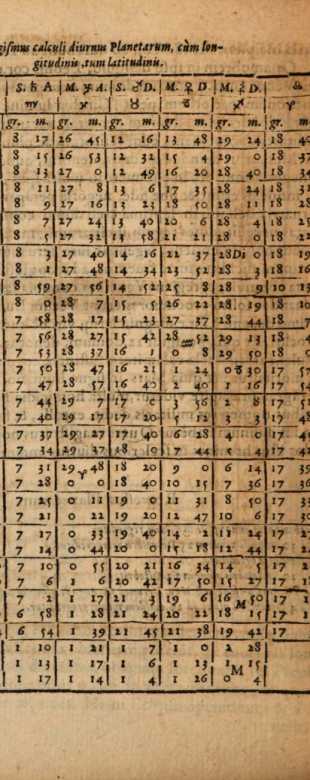 giſmus calculi diurnus Planetarum, cùm lon-
gitudinis, tum latitudinis.
S. ♄ A M. ♃ A. S. ♂ D. M. ♀ D M. ☿ D. ☊
♍ ♐ ♉ ♐ ♈
gr. m. gr. m. gr. m. gr. m. gr. m. gr. m
8 17 26 45 12 16 13 48 29 24 18
8 15 26 53 12 32 15 4 29 0 18 37
8 13 27 0 12 49 16 20 28 40 18 34
8 11 27 8 13 6 17 35 28 24 18 31
8 9 27 16 13 23 18 50 28 11 18 28
8 7 27 24 13 40 20 6 28 4 18 25
8 5 27 32 13 58 21 21 28 0 18 22
8 3 27 40 14 16 22 37 28 Di 0 18 19
8 1 27 48 14 34 23 52 28 3 18 16
8 59 27 56 14 52 25 8 28 9 10 13
8 0 28 7 15 5 26 22 28 19 18 10
7 58 28 17 15 23 27 37 28 44 18
7 56 28 27 15 42 28 52 29 13 18
7 53 28 37 16 1 0 8 29 50 18
7 50 28 47 16 21 1 24 0 30 17
7 47 28 57 16 40 2 40 1 16 17
7 44 29 7 17 0 3 56 2 8 17
7 40 29 17 17 20 5 12 3 3 17
7 37 29 27 17 40 6 28 4 0 17
7 34 29 37 18 0 7 44 5 4 17
7 31 29 ♈ 48 18 20 9 0 6 14 17 39
7 28 0 0 18 40 10 15 7 36 17 36
7 25 0 11 19 0 11 31 8 50 17
7 21 0 22 19 20 12 47 10 6 17
7 17 0 33 19 40 14 2 11 24 17
7 14 0 44 20 0 15 18 12 44 17
7 10 0 55 20 21 16 34 14 5 17
7 6 1 6 20 42 17 50 15 27 17
7 2 1 17 21 3 19 6 16 M 50 17
6 58 1 28 21 24 20 22 18 15 17
6 54 1 39 21 45 21 38 19 42 17
1 10 1 21 1 7 1 0 2 28
1 13 1 17 1 6 1 13 1 M 15
1 17 1 14 1 4 1 26 0 4